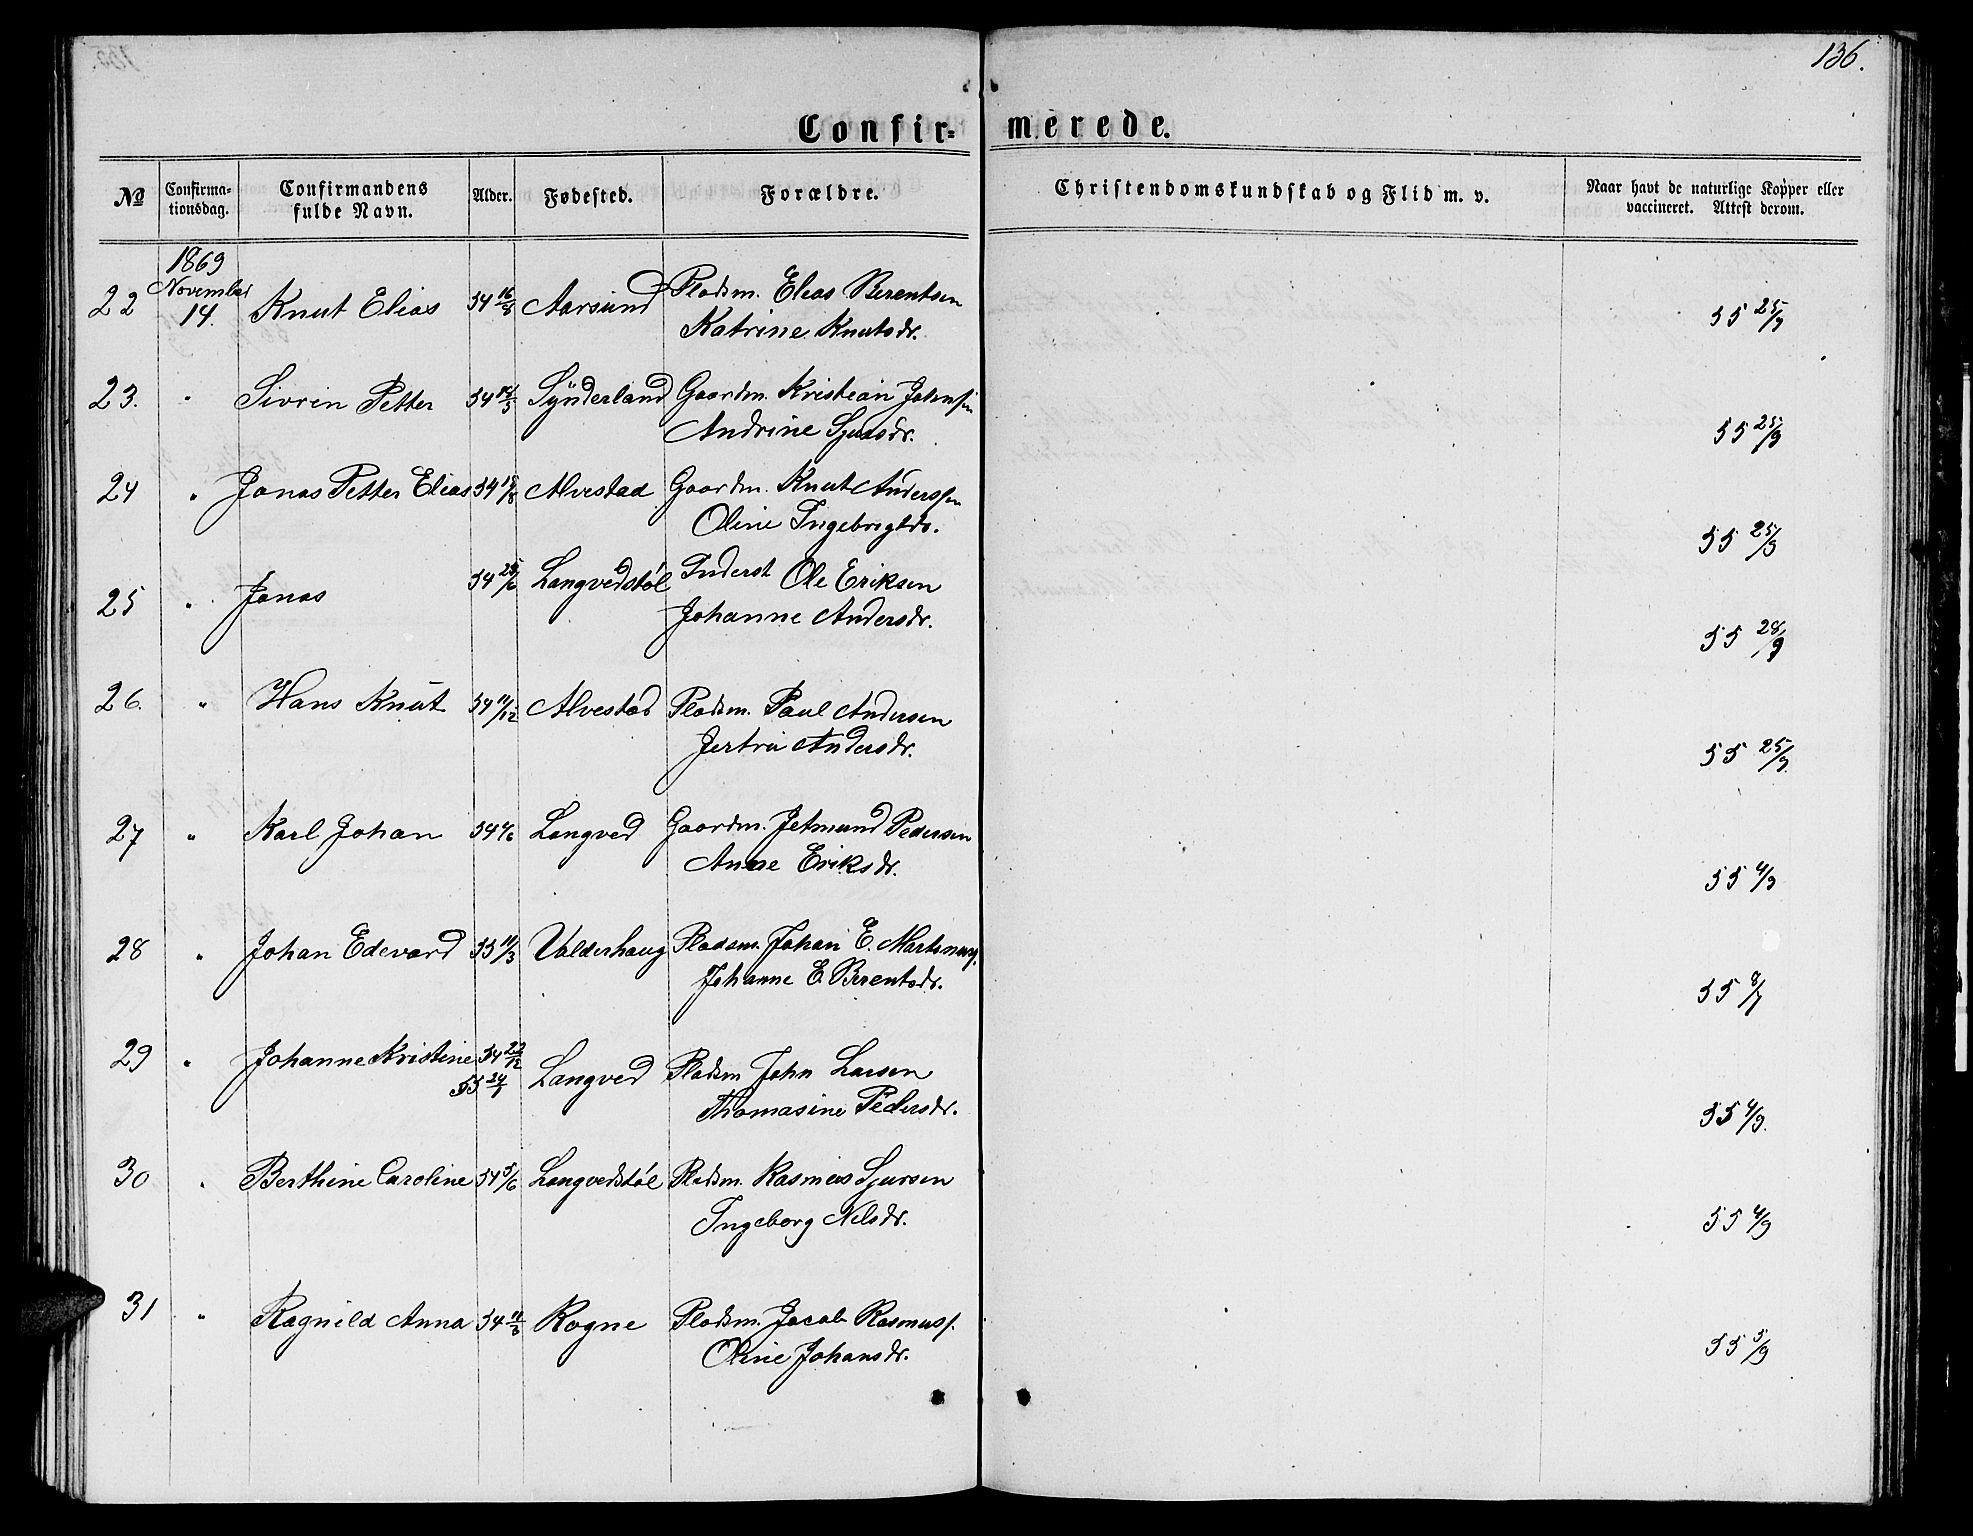 136.
Confir- merede.
No Confirmationsdag. Confirmandens fulde Navn. Alder. Fødested. Forældre. Christendomskundskab og Flid m. v. Naar havt de naturlige Kopper eller vaccineret. Attest derom.
1869
November
22 14. Knut Elias 54 16/8 Aarsund Pladsm. Elias Berentsen 55 25/9
Katrine Knutsdr.
23. " Sivrin Petter 54 Synderland Gaardm. Kristian Johnsen 55 25/9
Andrine Sjursdr.
24 " Jonas Petter Elias 54 18/8 Alvestad Gaardm. Knut Anderssen 55 25/9
Oline Ingebrigtdr.
25 " Jonas 54 25/6 Langvedstøl Inderst Ole Eriksen 55 28/9
Johanne Andersdr.
26. " Hans Knut 54 11/12 Alvestad Pladsm. Paul Andersen 55 25/9.
Jertru Andersdr.
27 " Karl Johan 54 Langved Gaardm. Jetmund Pedersen 55 4/9
Anne Eriksdr.
28 " Johan Edevard 55 11/3 Valderhaug Pladsm. Johan E. Martinus. 55 8/7
Johanne E. Berentsdr.
29 " Johanne Kristine 54 22/12 Langved Pladsm John Larsen 55 4/9.
55 24/7
Thomasine Pedersdr.
30 " Berthine Caroline 54 5/6 Langvedstøl Pladsm. Rasmus Sjursen 55 4/9
Ingeborg Nelsdr.
31 " Ragnild Anna 54 Rogne Pladsm. Jacob Rasmuss. 55 5/9
Oline Johansdr.